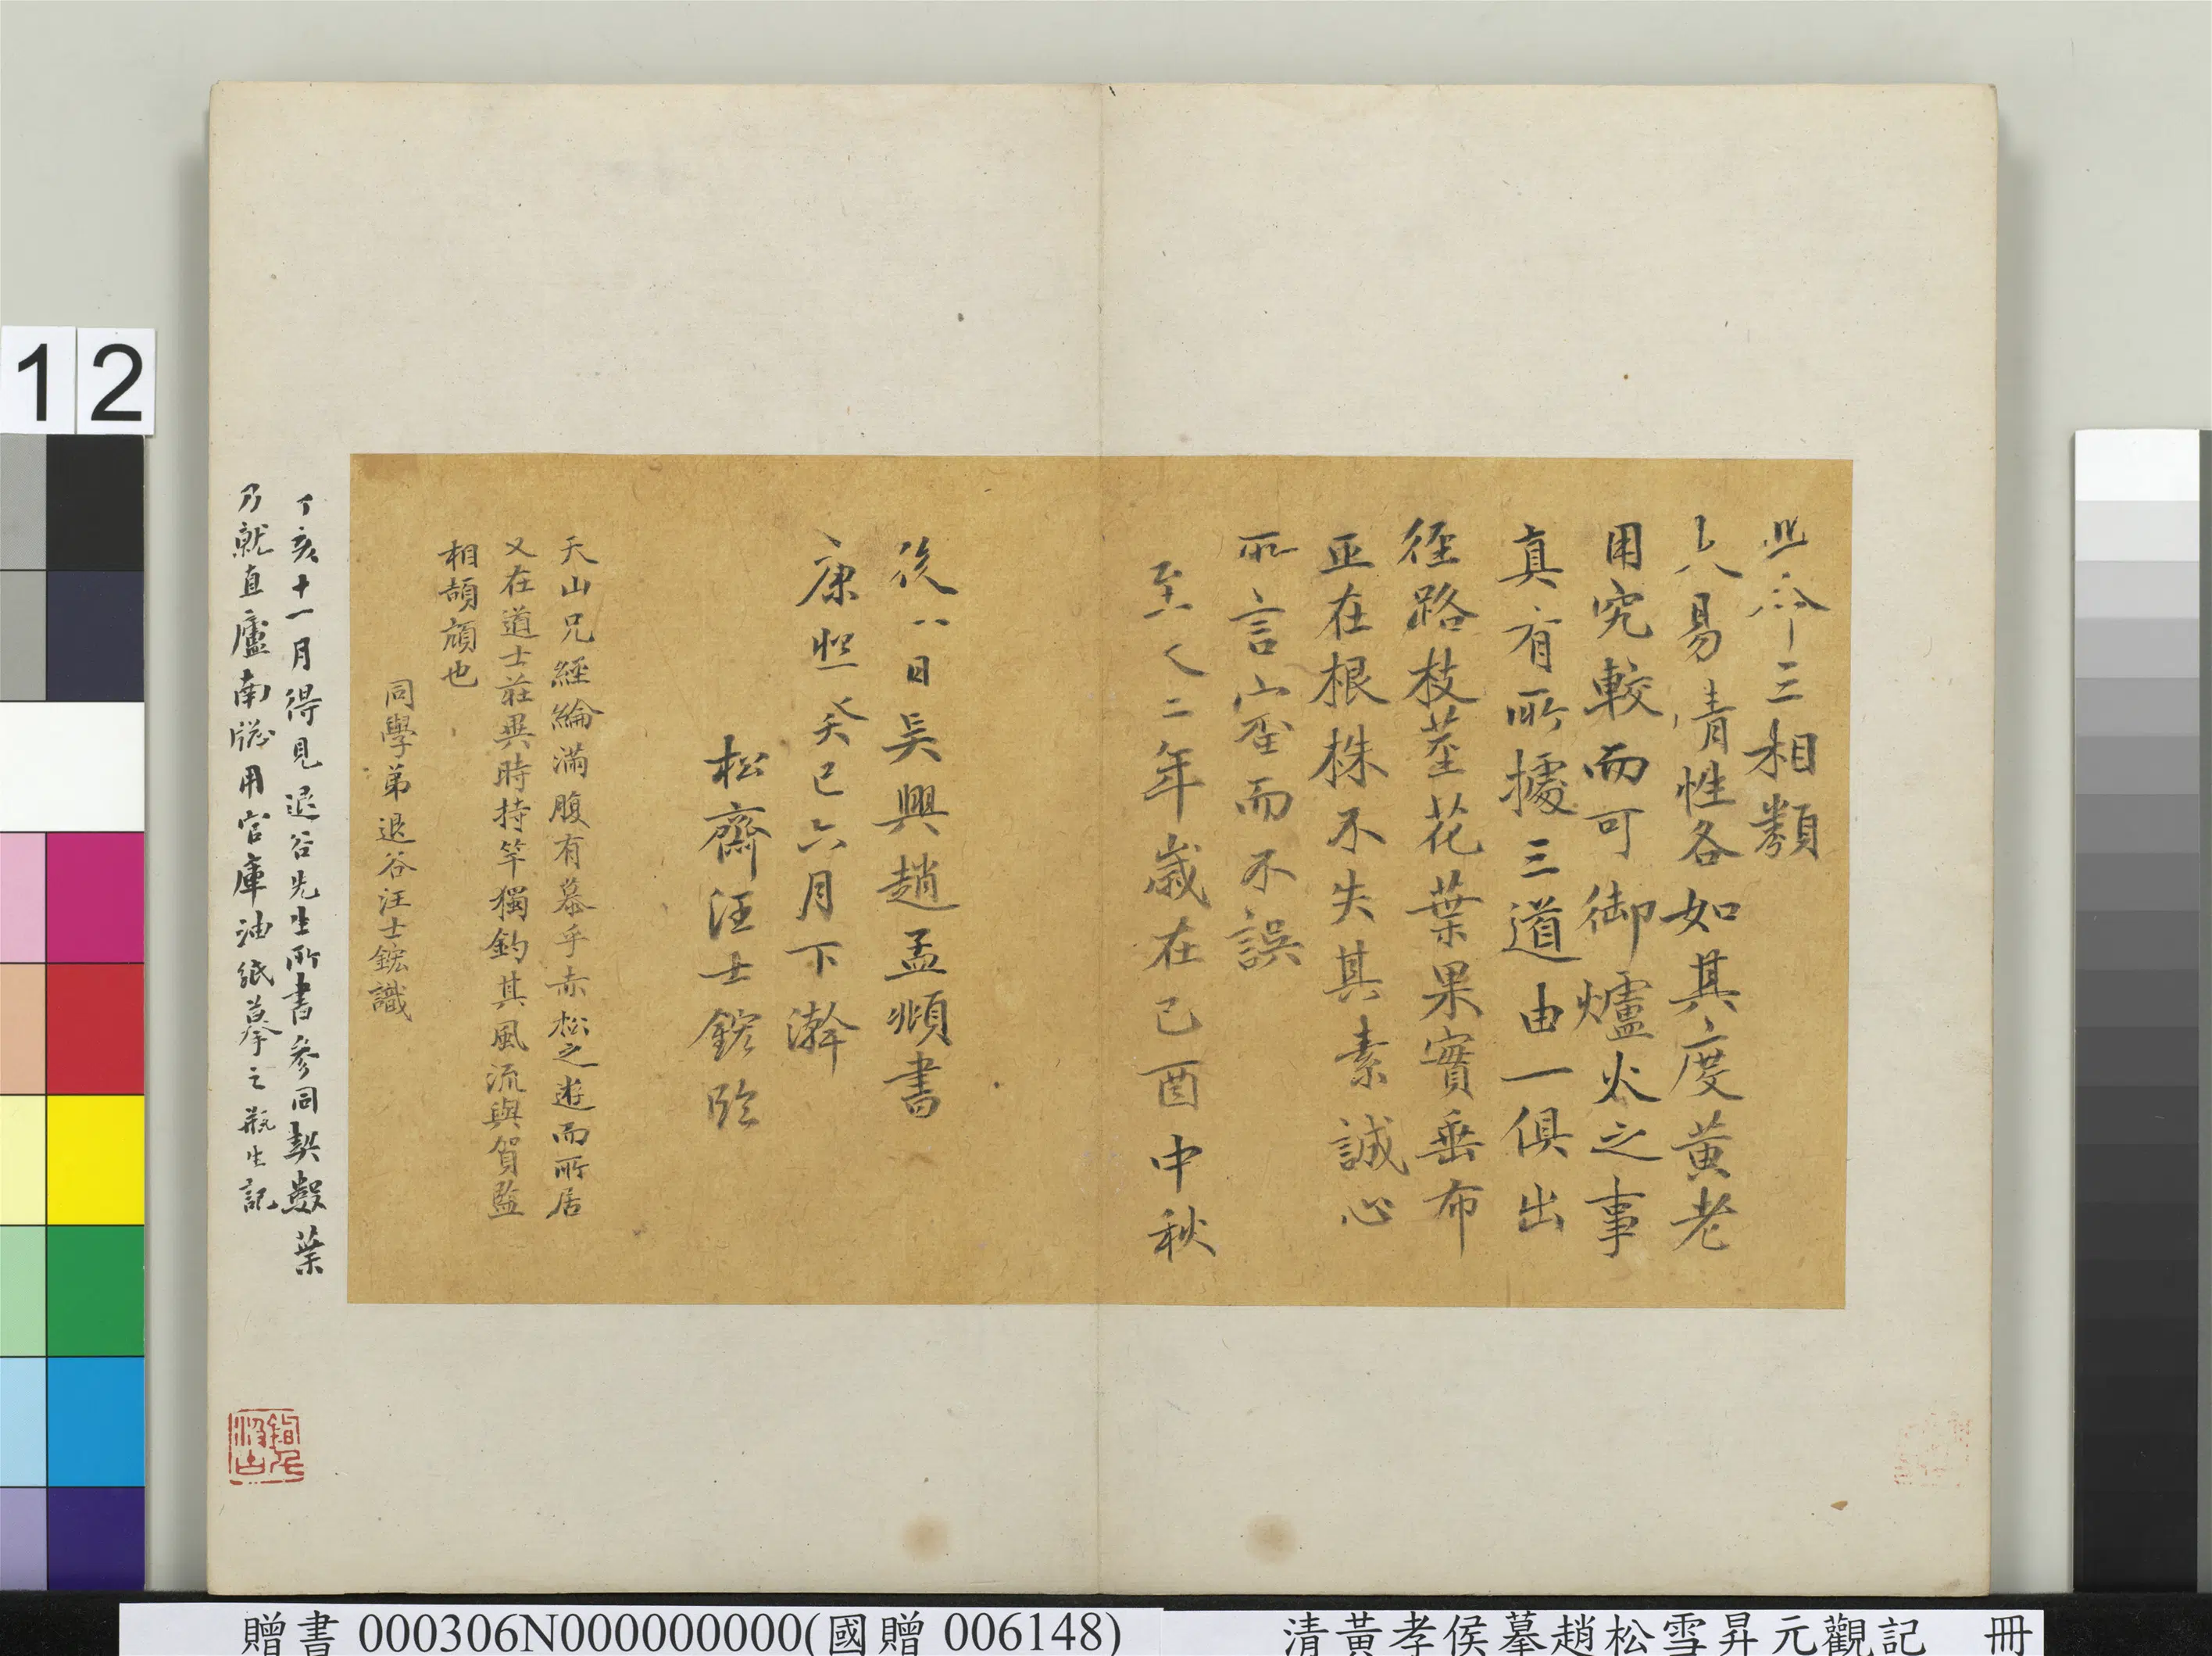 此命三相類
大易情性各如其度黄老
用究較而可御爐火之事
真有所據三道由一俱出
徑路枝莖花葉果實垂布
正在根株不失其素誠心
所言審而不誤
至大二年歲在己酉中秋
後八日吳興趙孟頫書
康熙癸巳六月下澣
松齋汪士鋐臨
天山兄經綸滿腹有慕乎赤松之遊而所居
又在道士莊異時持竿獨釣其風流與賀監
相頡頏也
同學弟退谷汪士鋐識
丁亥十一月得見退谷先生所書參同契數葉
乃就直廬南牕用官庫油紙摹之瓶生記
12
贈書 000306N000000000(國贈 006148)
清黃孝侯摹趙松雪昇元觀記 冊